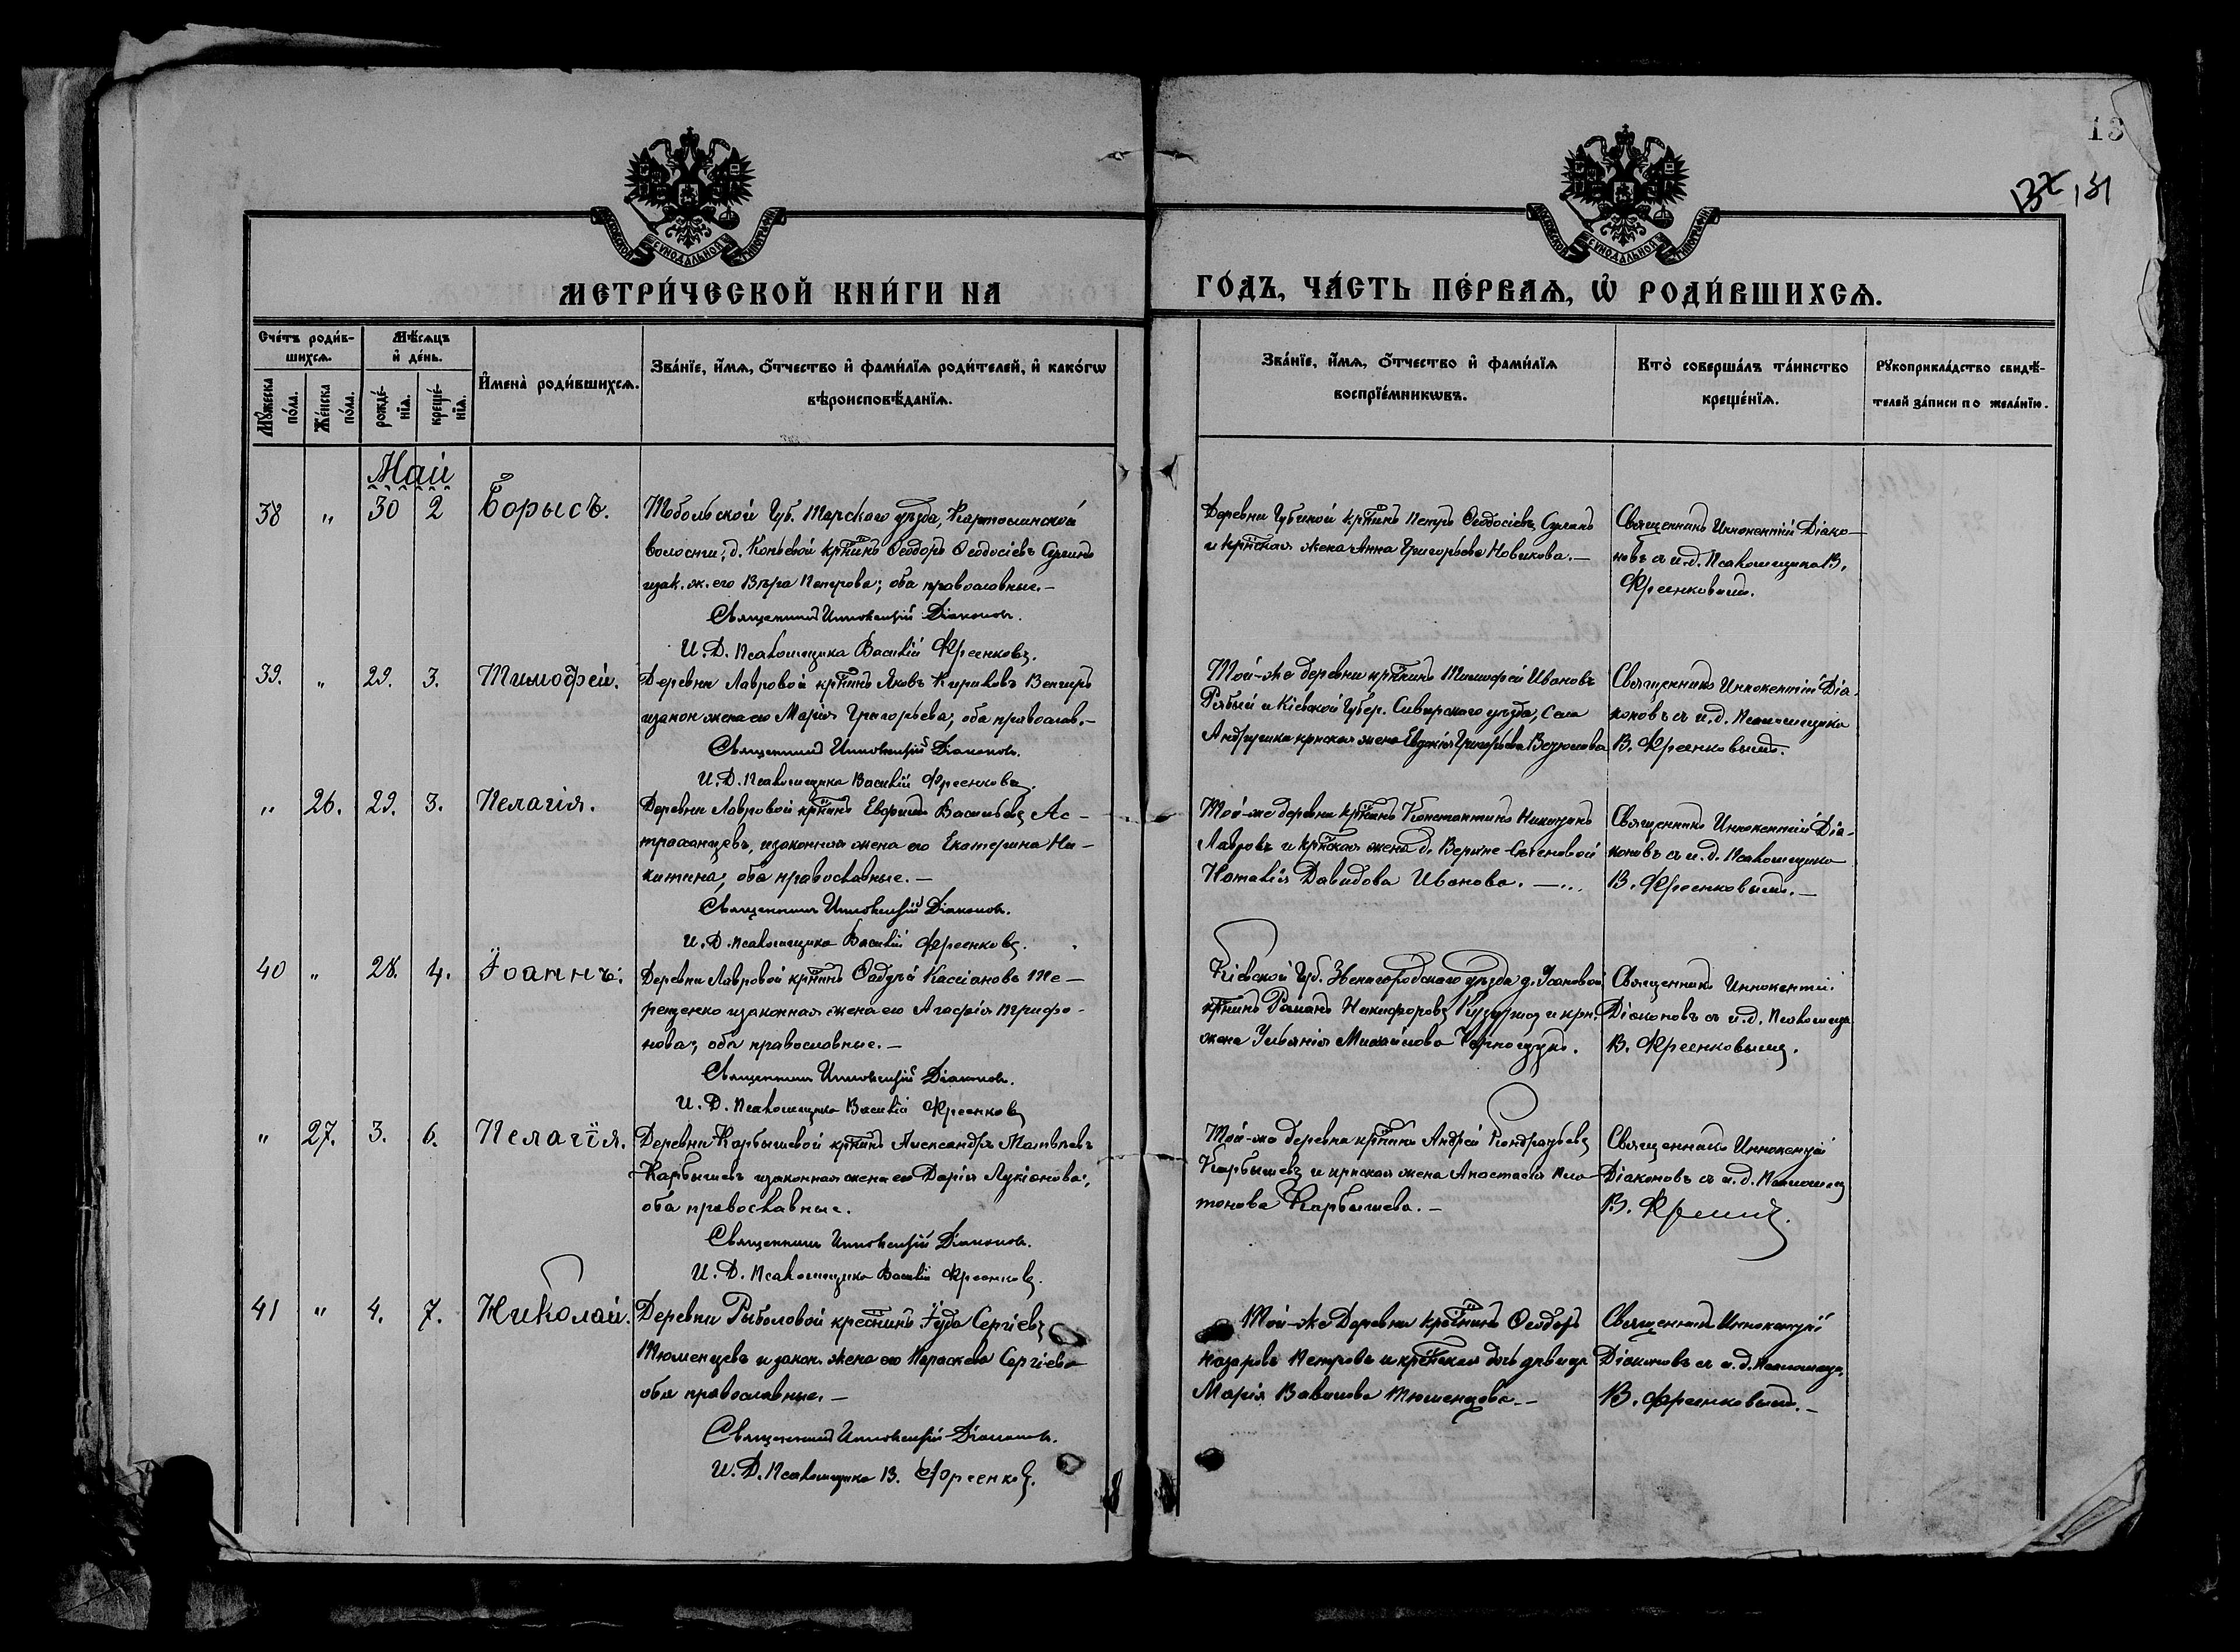 13
132 131
МЕТРИ́ЧЕСКОЙ КНИ́ГИ НА
ГО́ДЪ, ЧА́СТЬ ПЕ́РВАѦ, Ѡ҆ РОДИ́ВШИХСѦ.
Сче́тъ роди́в-
шихсѧ.
Мѣ́сѧцъ
и҆ де́нь.
Мꙋ́жеска
по́ла.
Же́нска
по́ла.
рожде́-
нїѧ.
креще́-
нїѧ.
И҆мена̀ роди́вшихсѧ.
Зва́нїе, и҆́мѧ, ѻ҆́тчество и҆ фами́лїѧ роди́телей, и҆ како́гѡ
вѣроисповѣ́данїѧ.
Зва́нїе, и҆́мѧ, ѻ҆́тчество и҆ фами́лїѧ
воспрїе́мникѡвъ.
Кто̀ соверша́лъ та́инство
креще́нїѧ.
Рꙋкоприкла́дство свидѣ́-
телей за́писи по жела́нїю.
Май
38 " 30 2 Борисъ.
Тобольской Губ. Тарскаго уѣзда, Карташинской
волости, д. Копьевой крнинъ Ѳеодоръ Ѳеодосіевъ
изак. ж. его Вѣра Петрова; оба православные.—
Священникъ Иннокентій Діаконовъ.
И. Д. Псаломщика Василій Фреенковъ.
Деревни крнинъ Петръ Ѳеодосіевъ
и крнская жена Анна Григорьева Новикова.—
Священникъ Иннокентій Діако-
новъ съ и.д. Псаломщика В.
Фреенковымъ.
39. " 29. 3. Тимоѳей.
Деревни Лавровой крнинъ Яковъ Кириловъ Венгеръ
изакон жена его Марія Григорьева, оба православ.—
Священникъ Иннокентій Діаконовъ.
И. Д. Псаломщика Василій Фреенковъ.
Той-же деревни крнинъ Тимофей Ивановъ
Рябый и Кіевской Губер. Сквирскаго уѣзда, Села
Андрушки крнская жена Евдокія Григорьева
Священникъ Иннокентій Діа-
коновъ съ и.д. Псаломщика
В. Фреенковымъ.
" 26. 29. 3. Пелагія.
Деревни Лавровой крнинъ Ефримъ Васильевъ Ас-
траханцевъ, изаконная жена его Екатерина Ни-
китина; оба православные.—
Священникъ Иннокентій Діаконовъ.
И. Д. Псаломщика Василій Фреенковъ.
Той-же деревни крнинъ Константинъ Никитинъ
Лавровъ и крнская жена д. Верхне-
Наталія Давидова Иванова.—
Священникъ Иннокентій Діа-
коновъ съ и.д. Псаломщика
В. Фреенковымъ.—
40 " 28. 4. Іоаннъ.
Деревни Лавровой крнинъ Кассіановъ Те-
рещенко изаконная жена его Агафія Трифо-
нова; оба православные.—
Священникъ Иннокентій Діаконовъ.
И. Д. Псаломщика Василій Фреенковъ
Кіевской Губ. Звенигородскаго уѣзда д.
крнинъ Романъ Никифоровъ и крн.
жена Ульянія Михайлова
Священникъ Иннокентій
Діаконовъ съ и.д. Псаломщ.
В. Фреенковымъ.
" 27. 3. 6. Пелагія.
Деревни Карбышевой крнинъ Александръ Матвѣевъ
Карбышевъ изаконная жена его Дарія Лукіанова;
оба православные.
Священникъ Иннокентій Діаконовъ.
И. Д. Псаломщика Василій Фреенковъ.
Той-же деревни крнинъ Андрей Кондратьевъ
Карбышевъ и крнская жена Анастасія Пла-
тонова Карбышева.—
Священникъ Иннокентій
Діаконовъ съ и.д. Псаломщ
В.
41 " 4. 7. Николай.
Деревни Рыболовой креснинъ Іуда Сергіевъ
Тюменцевъ и закон. жена его Параскева Сергіева
оба православные.—
Священникъ Иннокентій Діаконовъ.
И. Д. Псаломщика В. Фреенковъ.
Той-же Деревни крестнинъ Ѳеодоръ
Назаровъ Петровъ и крестнская дочь дѣвица
Марія Вавилова Тюменцова.—
Священникъ Иннокентій
Діаконовъ съ и.д. Псаломщ.
В. Фреенковымъ.—